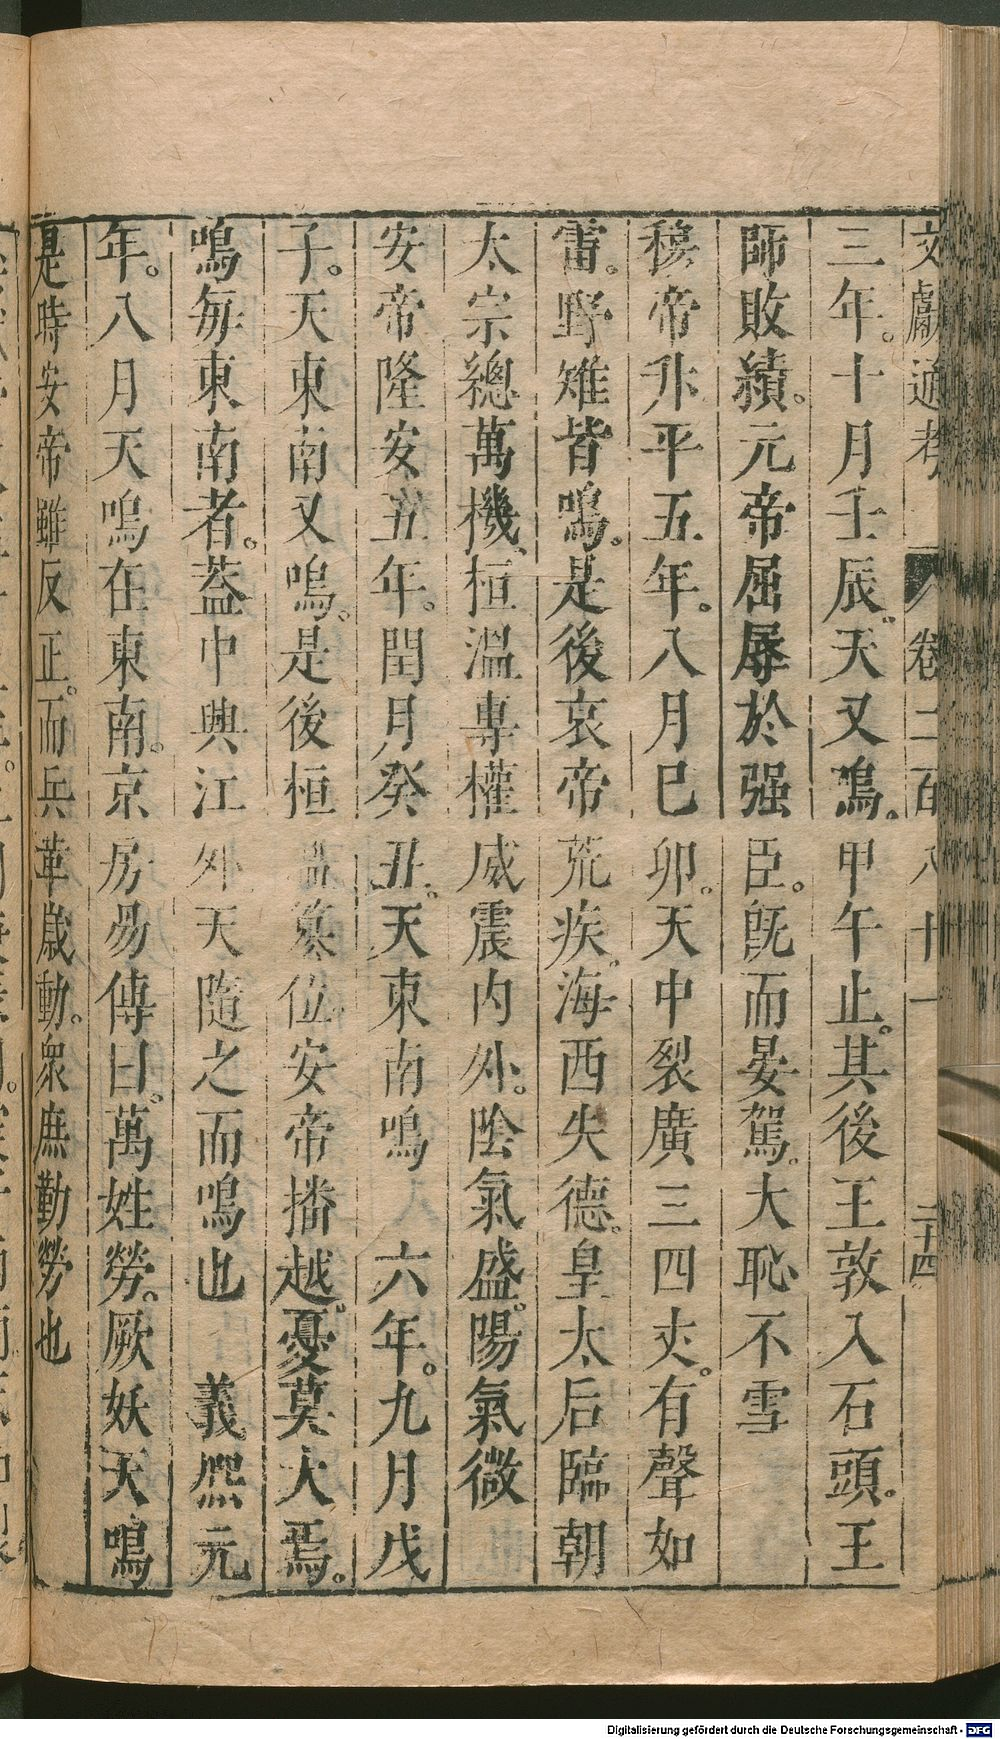 文獻通考 卷二百八十一 三十四
三年。十月壬辰。天又鳴。甲午止。其後王敦入石頭。王
師敗績。元帝屈辱於强臣。旣而晏駕。大恥不雪
穆帝升平五年。八月巳卯。天中裂廣三四丈。有聲如
雷。野雉皆鳴。是後哀帝荒疾。海西失德。皇太后臨朝
太宗總萬機、桓溫專權威震內外。陰氣盛。陽氣微
安帝隆安五年。閏月癸丑。天東南鳴 六年。九月戊
子。天東南又鳴。是後桓篡位。安帝播越。憂莫大焉。
鳴每東南者。蓋中興江外天隨之而鳴也 義熙元
年。八月天鳴在東南。京房易傳曰。萬姓勞。厥妖天鳴
是時安帝雖反正。而兵革歲動。衆庶勤勞也
Digitalisierung gefördert durch die Deutsche Forschungsgemeinschaft - DFG